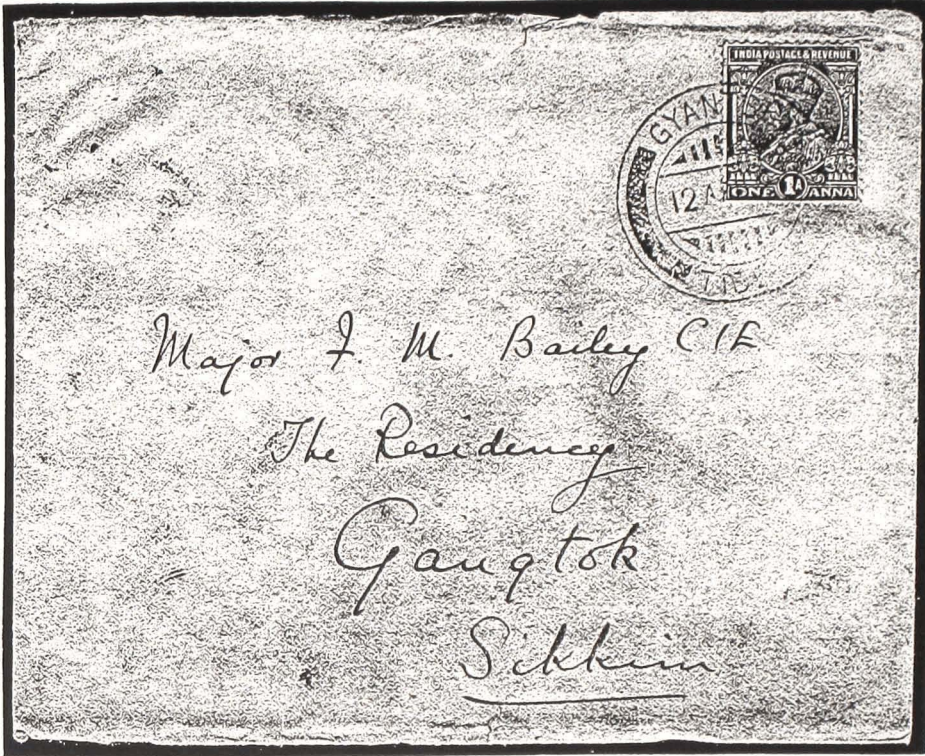 INDIA POSTAGE & REVENUE
GYAN
12 A
ONE 1A ANNA
TIB
Major F. M. Bailey CIE
The Residency
Gangtok
Sikkim